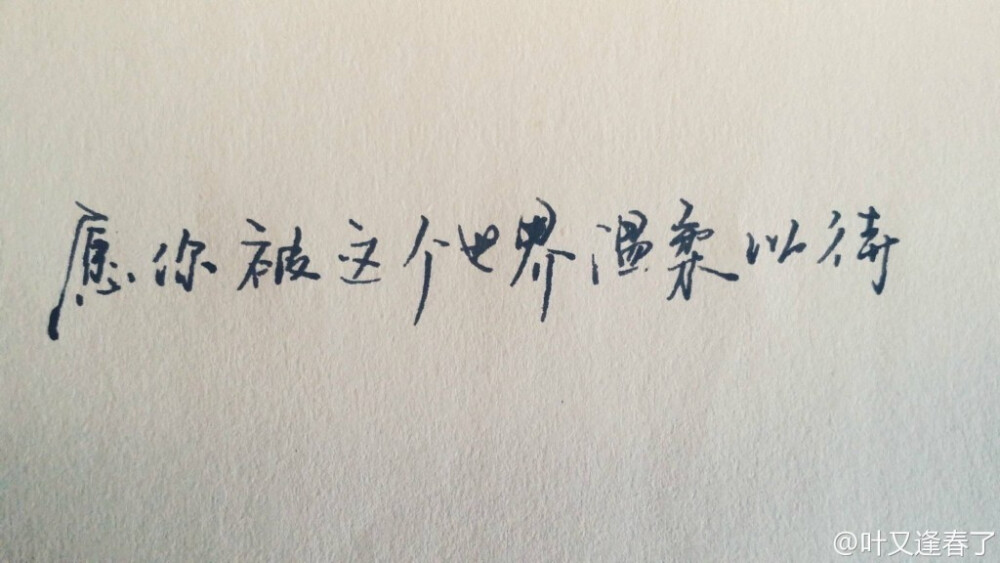 愿你被这个世界温柔以待
@叶又逢春了